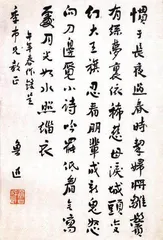 慣于長夜過春時挈婦將雛鬢
有絲夢里依稀慈母淚城頭變
幻大王旗忍看朋輩成新鬼怒
向刀邊覓小詩吟罷低眉無寫
處月光如水照緇衣
午年春作錄呈
季市兄教正
魯迅